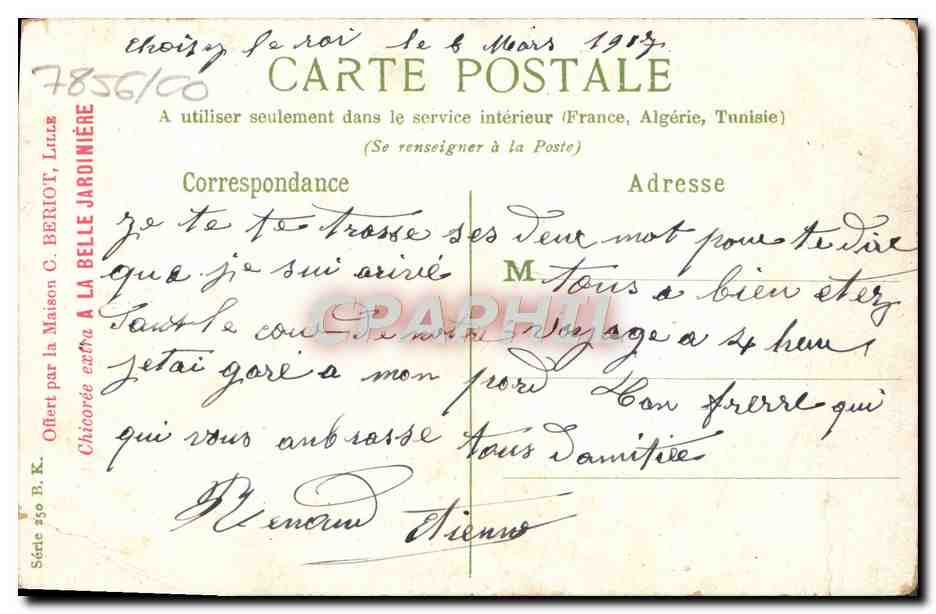 Choisy le roi le 6 Mars 1917
7856/CO
CARTE POSTALE
A utiliser seulement dans le service intérieur (France, Algérie, Tunisie)
(Se renseigner à la Poste)
Correspondance
Adresse
Je te te trasse ses deux mot pour te dire
que je sui arivé
M
tous a bien etez
dans le cour de notre voyage a 4 heur
jetai garé a mon pord
Ton frerre qui
qui vous anbrasse tous damitiée
Renaud Etienne
Offert par la Maison C. BERIOT, LILLE
Chicorée extra A LA BELLE JARDINIÈRE
Série 250 B. K.
CPAPHIL